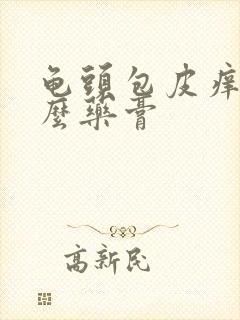 龟头包皮痒
麼藥膏
高新民